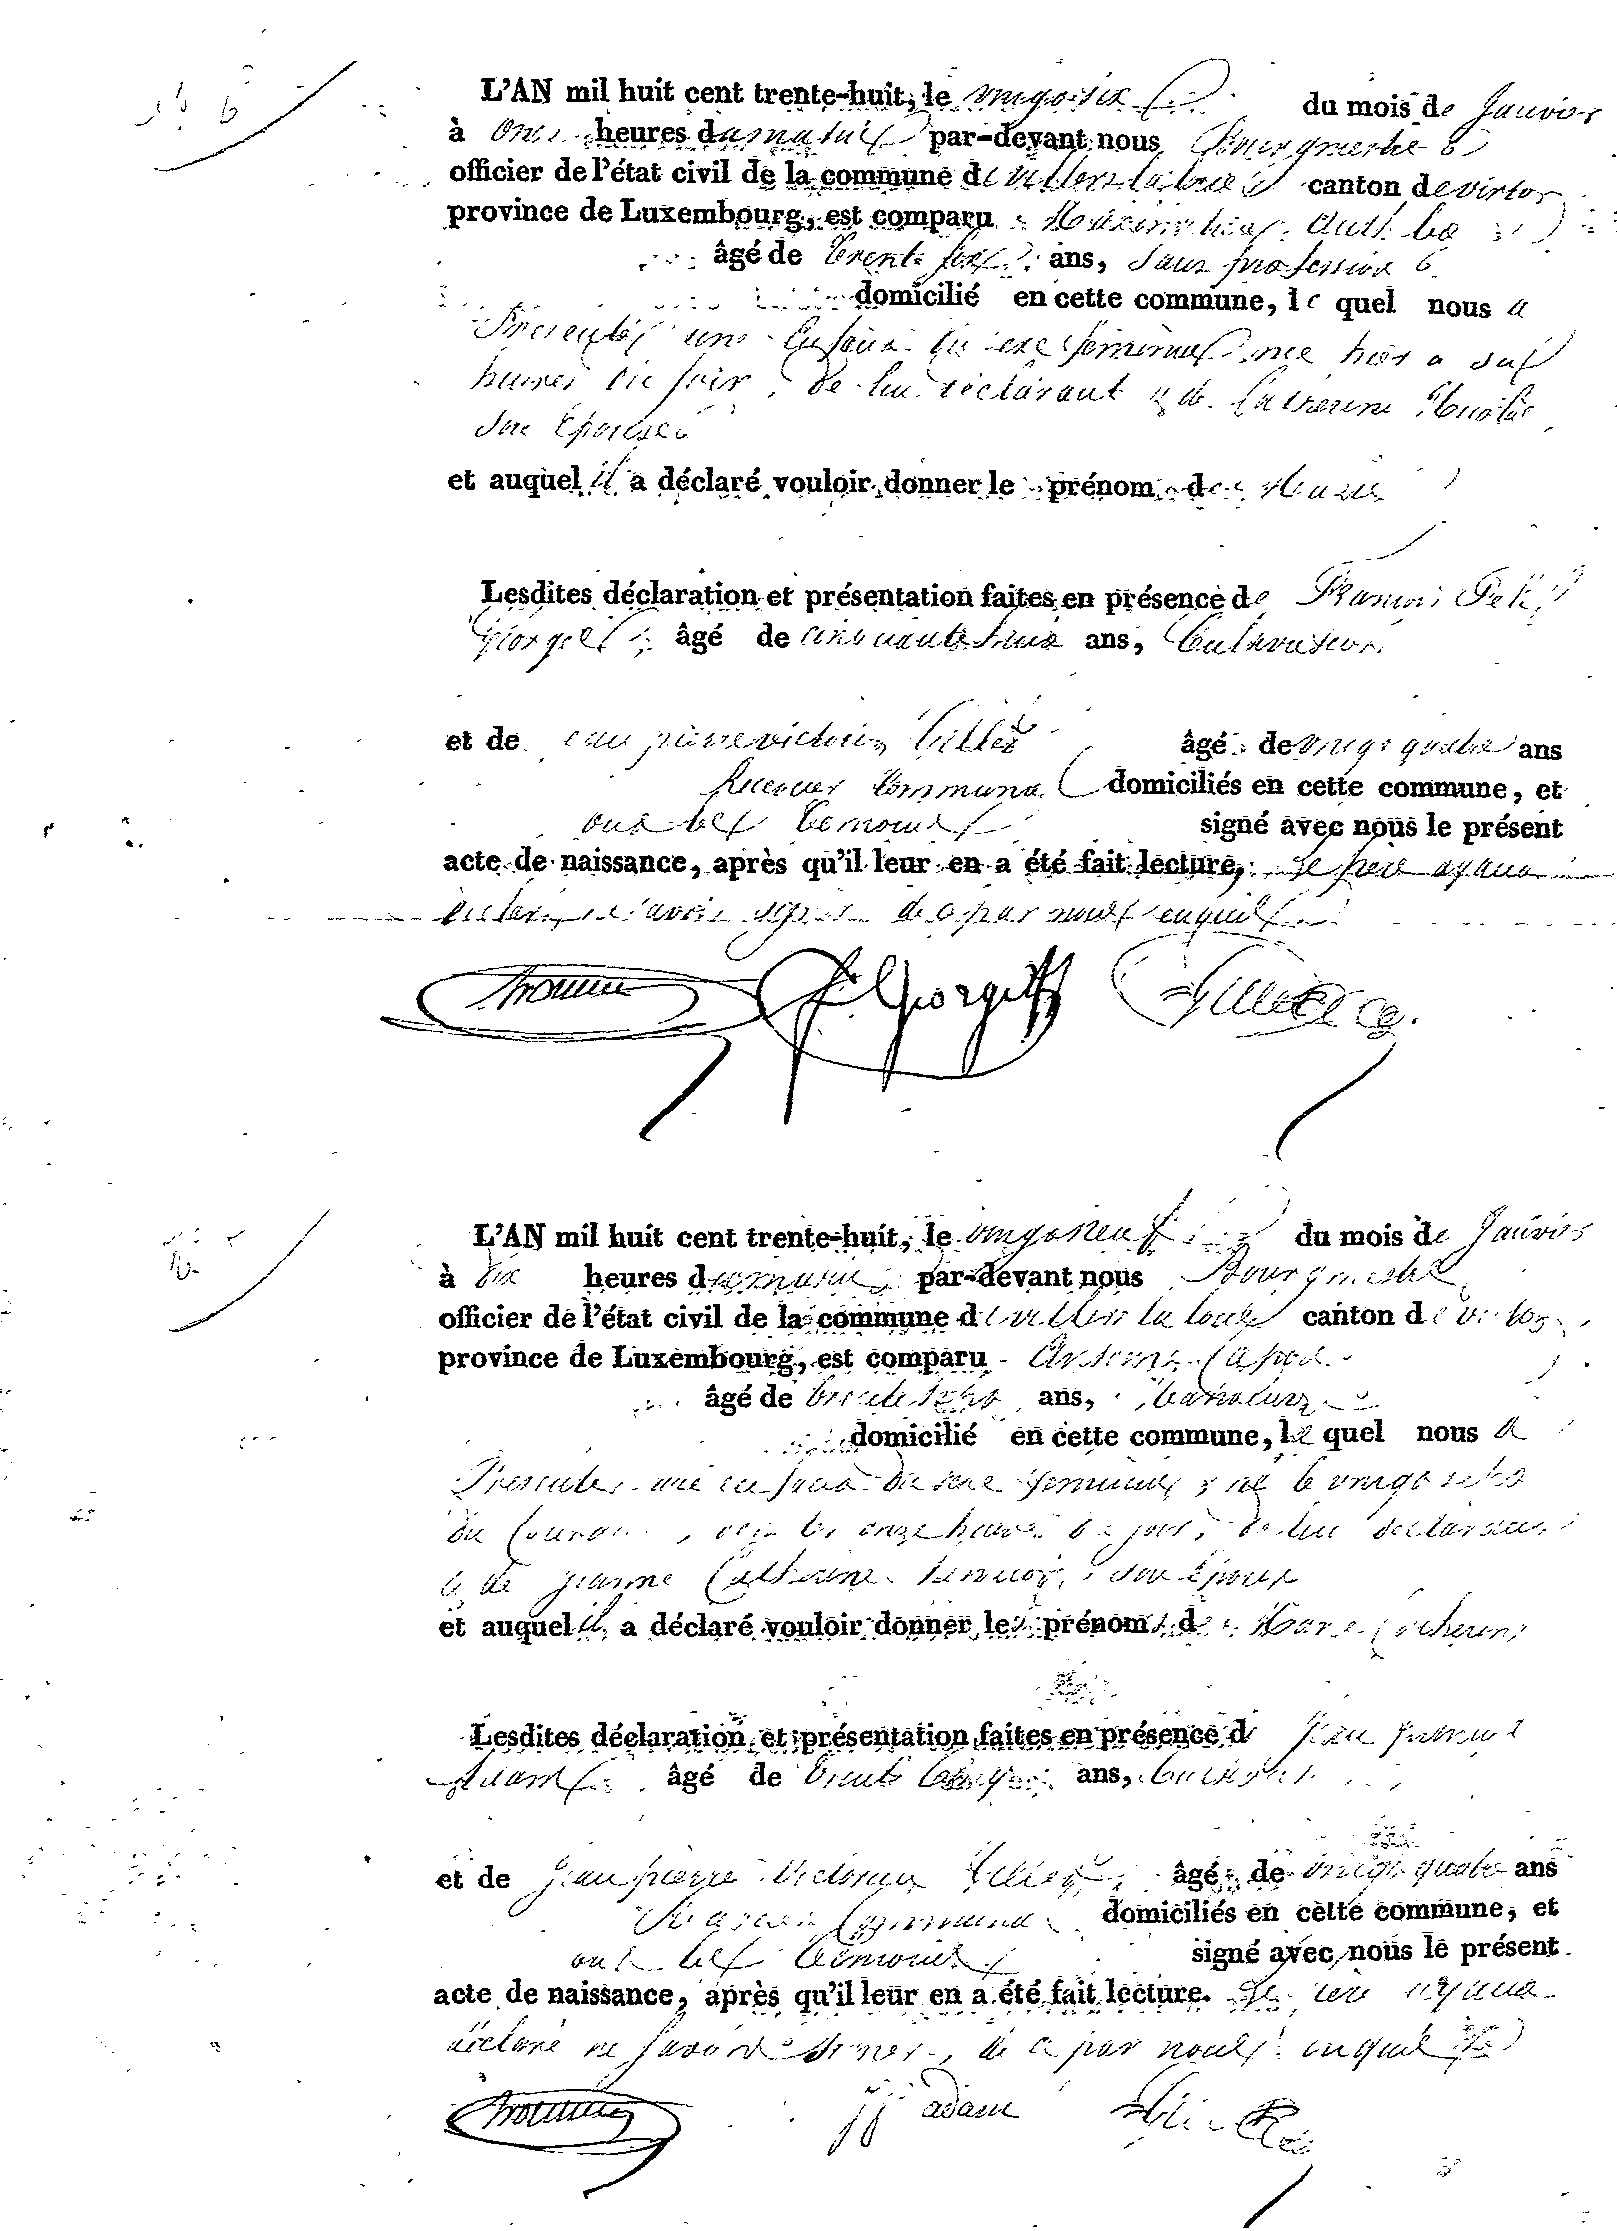 N° 6
L'AN mil huit cent trente-huit, le vingt six du mois de Janvier
à onze heures du matin par-devant nous Bourgmestre
officier de l'état civil de la commune de villers la loue canton de virton
province de Luxembourg, est comparu
âgé de trente six ans, Sans profession
domicilié en cette commune, le quel nous a
Presenté une Enfant du sexe féminin née hier a six
heures du soir, de lui déclarant & de Catherine
Son Epouse
et auquel il a déclaré vouloir donner le prénom de Marie
Lesdites déclaration et présentation faites en présence de François
Giorget âgé de cinquante ans, Cultivateur
et de Jean pierre victorin Gillet âgé de vingt quatre ans
Receveur Communal domiciliés en cette commune, et
ont les temoins signé avec nous le présent
acte de naissance, après qu'il leur en a été fait lecture, le pere ayant
déclaré ne savoir signer de ce par nous enquis
L'AN mil huit cent trente-huit, le vingt neuf du mois de Janvier
à dix heures du matin par-devant nous Bourgmestre
officier de l'état civil de la commune de villers la loue canton de virton
province de Luxembourg, est comparu
âgé de trente ans,
domicilié en cette commune, le quel nous a
Presenté une enfant du sexe féminin, né le vingt
du Courant, vers les onze heures du jour, de lui déclarant
& de jeanne Catherine son Epouse
et auquel il a déclaré vouloir donner les prénoms de Marie Catherine
Lesdites déclaration et présentation faites en présence de Jean
Adam âgé de trente ans,
et de Jean pierre Victorin Gillet âgé de vingt quatre ans
Receveur Communal domiciliés en cette commune, et
ont les temoins signé avec nous le présent
acte de naissance, après qu'il leur en a été fait lecture. Le pere ayant
déclaré ne savoir signer, de ce par nous enquis
jj adam